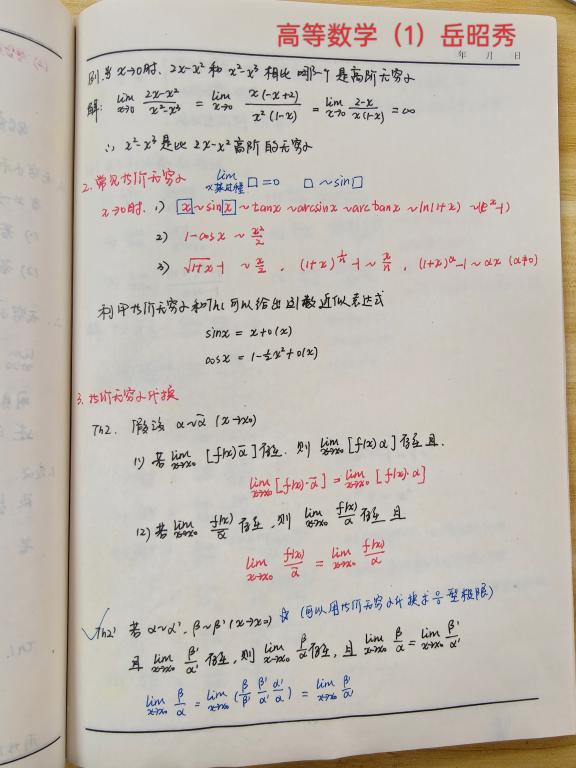 高等数学（1）岳昭秀
年 月 日
例.当 x→0时, 2x-x² 和 x²-x³ 相比 哪一个 是高阶无穷小
解: lim x→0 (2x-x²)/(x²-x³) = lim x→0 x(-x+2)/(x²(1-x)) = lim x→0 (2-x)/(x(1-x)) = ∞
∴ x²-x³ 是比 2x-x² 高阶的无穷小
2. 常见等价无穷小 lim x某过程 □=0 □~sin□
x→0时. 1) x~sinx~tanx~arcsinx~arctanx~ln(1+x)~(e^x-1)
2) 1-cosx ~ x²/2
3) √(1+x)-1 ~ x/2 , (1+x)^(1/n)-1 ~ x/n , (1+x)^α-1 ~ αx (α≠0)
利用等价无穷小和Th1可以给出函数近似表达式
sinx = x+o(x)
cosx = 1-½x²+o(x)
3. 等价无穷小代换
Th2. 假设 α~ᾱ (x→x₀)
(1) 若 lim x→x₀ [f(x)ᾱ]存在. 则 lim x→x₀ [f(x)α]存在且.
lim x→x₀ [f(x)·ᾱ] = lim x→x₀ [f(x)·α]
(2) 若 lim x→x₀ f(x)/ᾱ 存在, 则 lim x→x₀ f(x)/α 存在 且
lim x→x₀ f(x)/ᾱ = lim x→x₀ f(x)/α
√Th2' 若 α~α', β~β' (x→x₀) ☆ (可以用等价无穷小代换求 0/0 型极限)
且 lim x→x₀ β'/α' 存在, 则 lim x→x₀ β/α 存在, 且 lim x→x₀ β/α = lim x→x₀ β'/α'
lim x→x₀ β/α = lim x→x₀ (β/β' β'/α' α'/α) = lim x→x₀ β'/α'